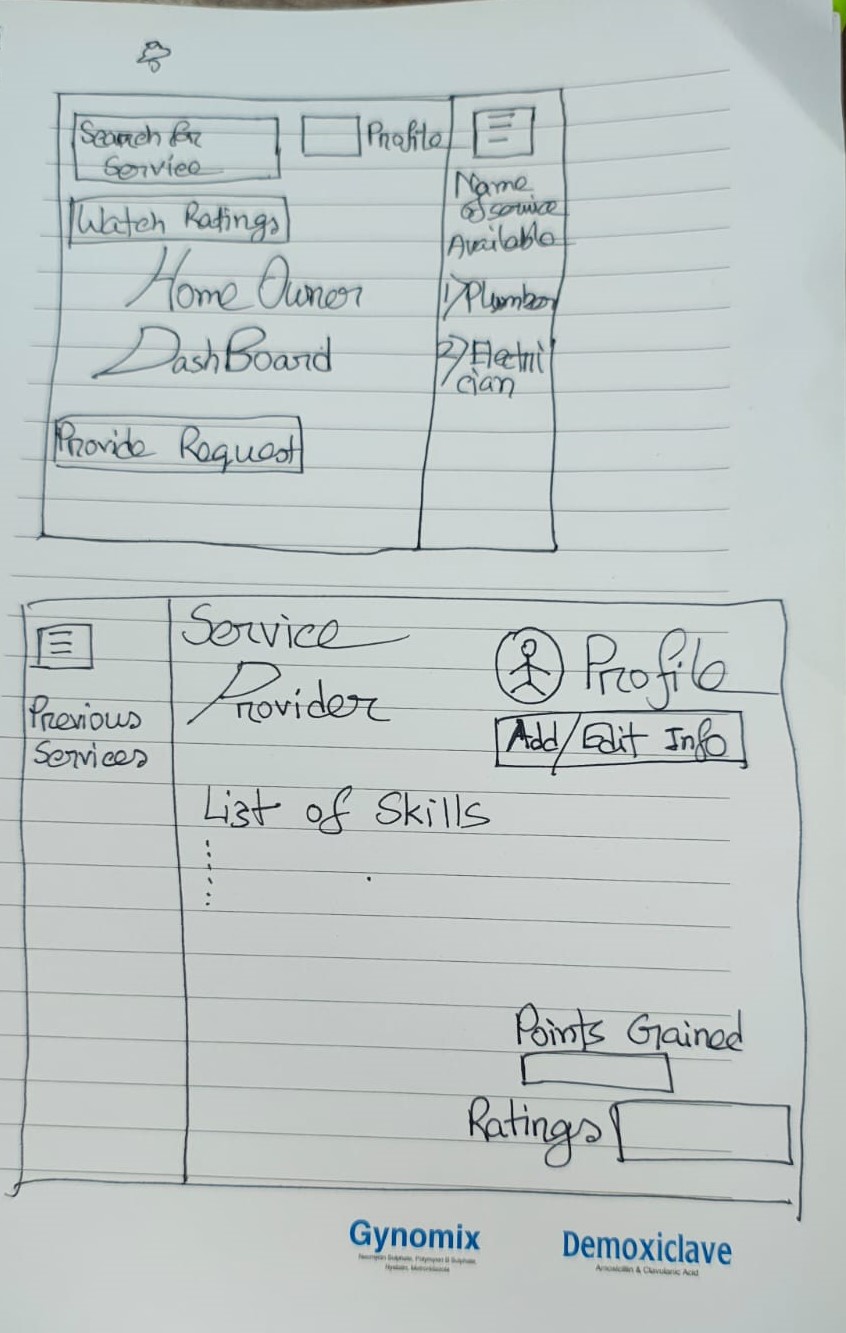 Search for
Service
Profile
Watch Ratings
Home Owner
DashBoard
Provide Request
Name
of service
Available
1) Plumber
2) Electri
cian
Service
Provider
Profile
Add/Edit Info
Previous
Services
List of Skills
Points Gained
Ratings
Gynomix
Neomycin Sulphate, Polymyxin B Sulphate,
Nystatin, Metronidazole
Demoxiclave
Amoxicillin & Clavulanic Acid